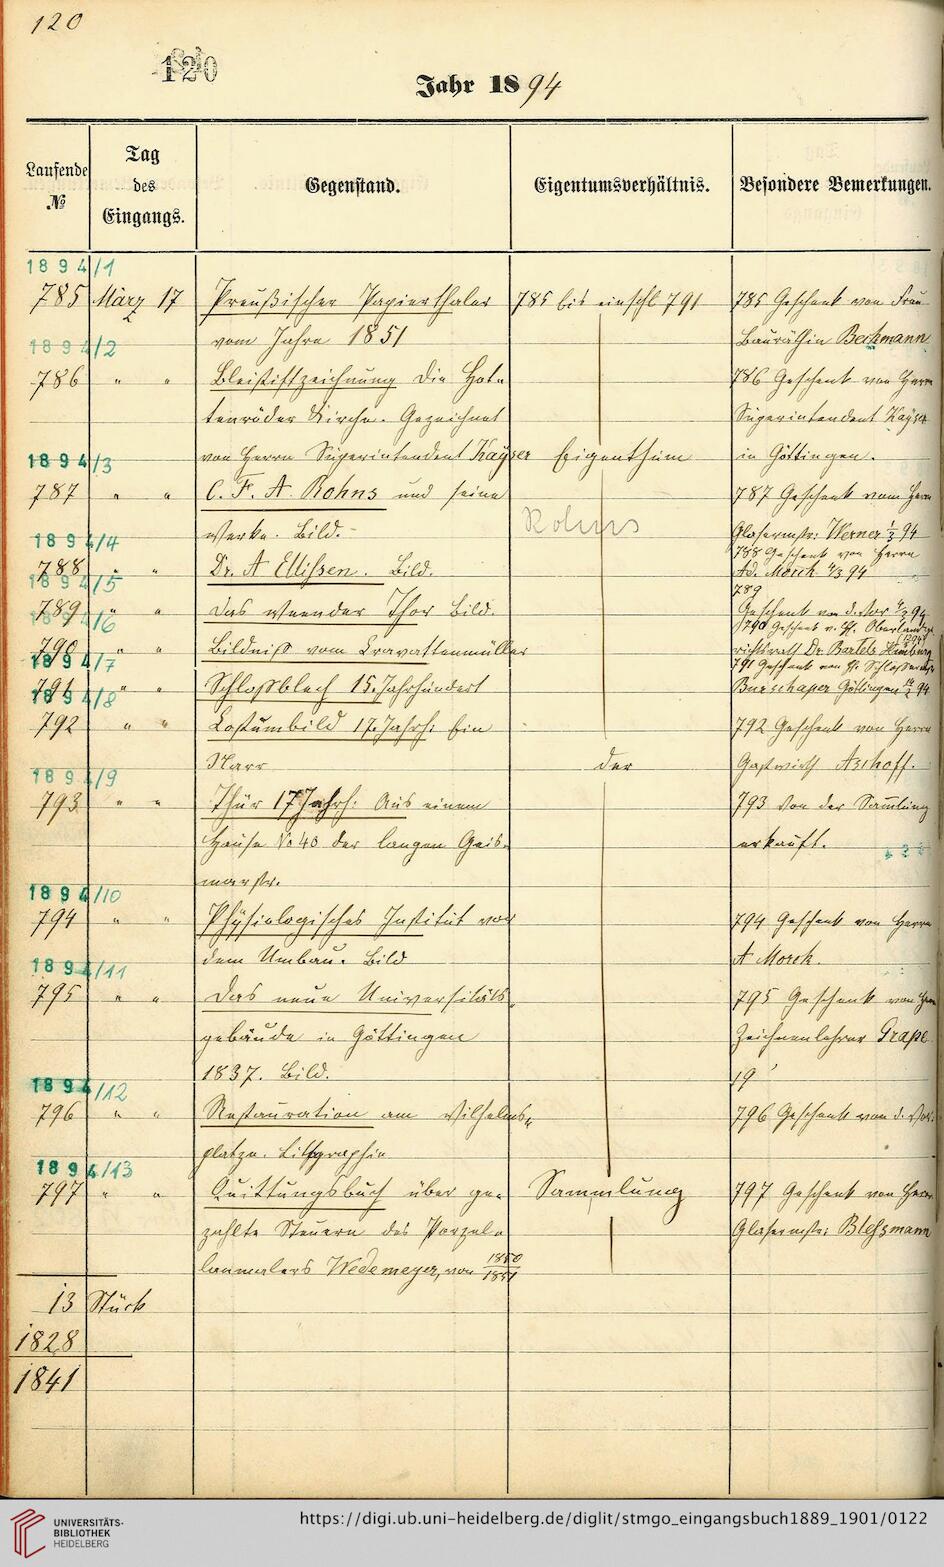 120
120
Jahr 1894
Laufende
№
Tag
des
Eingangs.
Gegenstand.
Eigentumsverhältnis.
Besondere Bemerkungen.
1894/1
785 März 17 Preußischer Papierthaler 785 bis einschl 791 785 Geschenk von Frau
vom Jahre 1851 Bauräthin Beckmann
1894/2
786 " " Bleistiftzeichnung die Hets
tenröder Kirche. Gezeichnet
786 Geschenk von Herrn
Superintendent Kayser
von Herrn Superintendent Kayser Eigenthum in Göttingen.
1894/3
787 " " C. F. A. Rohns und seine 787 Geschenk vom Herrn
Werke. Bild. Rohns Glasermstr: Werner 1/3 94
1894/4
788 " " Dr. A Ellissen. Bild. 788 Geschenk von Herrn
Ad. Morck 4/3 94
1894/5
789 " " Das Weender Thor Bild. 789
Geschenk von d. Vor 4/3 94
1894/6
790 " " Bildniß vom Cravattenmüller 790 Geschenk v. H. Oberlandge
richtsrath Dr. Bartels Hamburg
1894/7
791 " " Schloßblech 15. Jahrhundert 791 Geschenk von H. Schlosser
Burschaper Göttingen 94
1894/8
792 " " Costümbild 17. Jahrh: Ein 792 Geschenk von Herrn
Narr der Gastwirth Aschoff.
1894/9
793 " " Thür 17 Jahrh: Aus einem 793 Von der Samlung
Hause No 40 der langen Geis- erkauft.
marstr.
1894/10
794 " " Physiologisches Institut vor 794 Geschenk von Herrn
dem Umbau. Bild A Morck.
1894/11
795 " " Das neue Universitäts- 795 Geschenk von Herrn
gebäude in Göttingen Zeichnenlehrer Grape
1837. Bild. 19
1894/12
796 " " Restauration am Wilhelms- 796 Geschenk von d. Vor.
platze. Lithographie
1894/13
797 " " Quittungsbuch über ge- Sammlung 797 Geschenk von Herrn
zahlte Steuern des Porzel- Glasermstr: Bleßmann
lanmalers Wedemeyer, von 1850/1851
13 Stück
1828
1841
UNIVERSITÄTS-
BIBLIOTHEK
HEIDELBERG
https://digi.ub.uni-heidelberg.de/diglit/stmgo_eingangsbuch1889_1901/0122